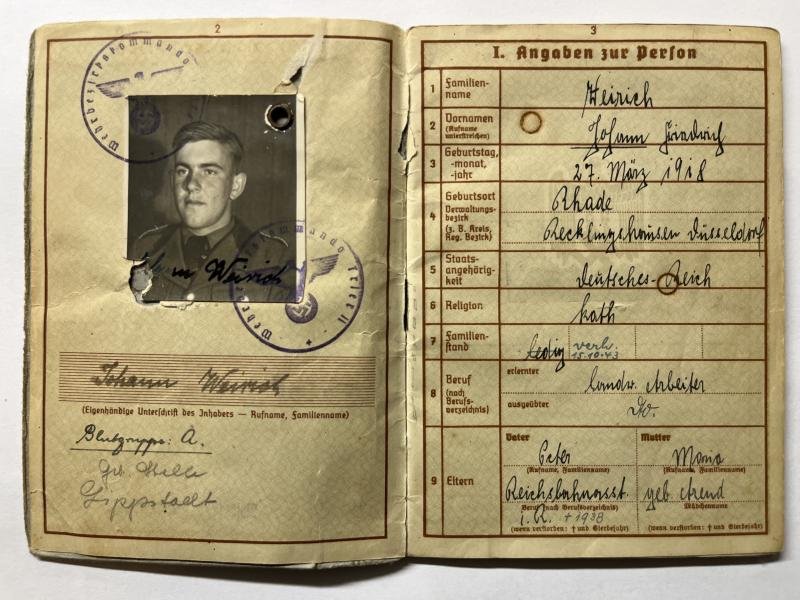 2
Wehrbezirkskommando
Wehrbezirkskommando Trier II
Johann Weirich
Johann Weirich
(Eigenhändige Unterschrift des Inhabers — Rufname, Familienname)
Blutgruppe: A.
Lippstadt
3
I. Angaben zur Person
1 Familien-name Weirich
2 Vornamen (Rufname unterstreichen) Johann Friedrich
3 Geburtstag, -monat, -jahr 27. März 1918
4 Geburtsort Rhade
Verwaltungs-bezirk (z. B. Kreis, Reg. Bezirk) Recklingshausen Düsseldorf
5 Staats-angehörig-keit Deutsches-Reich
6 Religion kath
7 Familien-stand ledig verh. 15.10.43
8 Beruf (nach Berufs-verzeichnis) erlernter landw. Arbeiter
ausgeübter Do.
9 Eltern
Vater Mutter
Peter Maria
(Rufname, Familienname) (Rufname, Familienname)
Reichsbahnasst. geb. Arend
Beruf (nach Berufsverzeichnis) Mädchenname
i. R. † 1938
(wenn verstorben: † und Sterbejahr) (wenn verstorben: † und Sterbejahr)